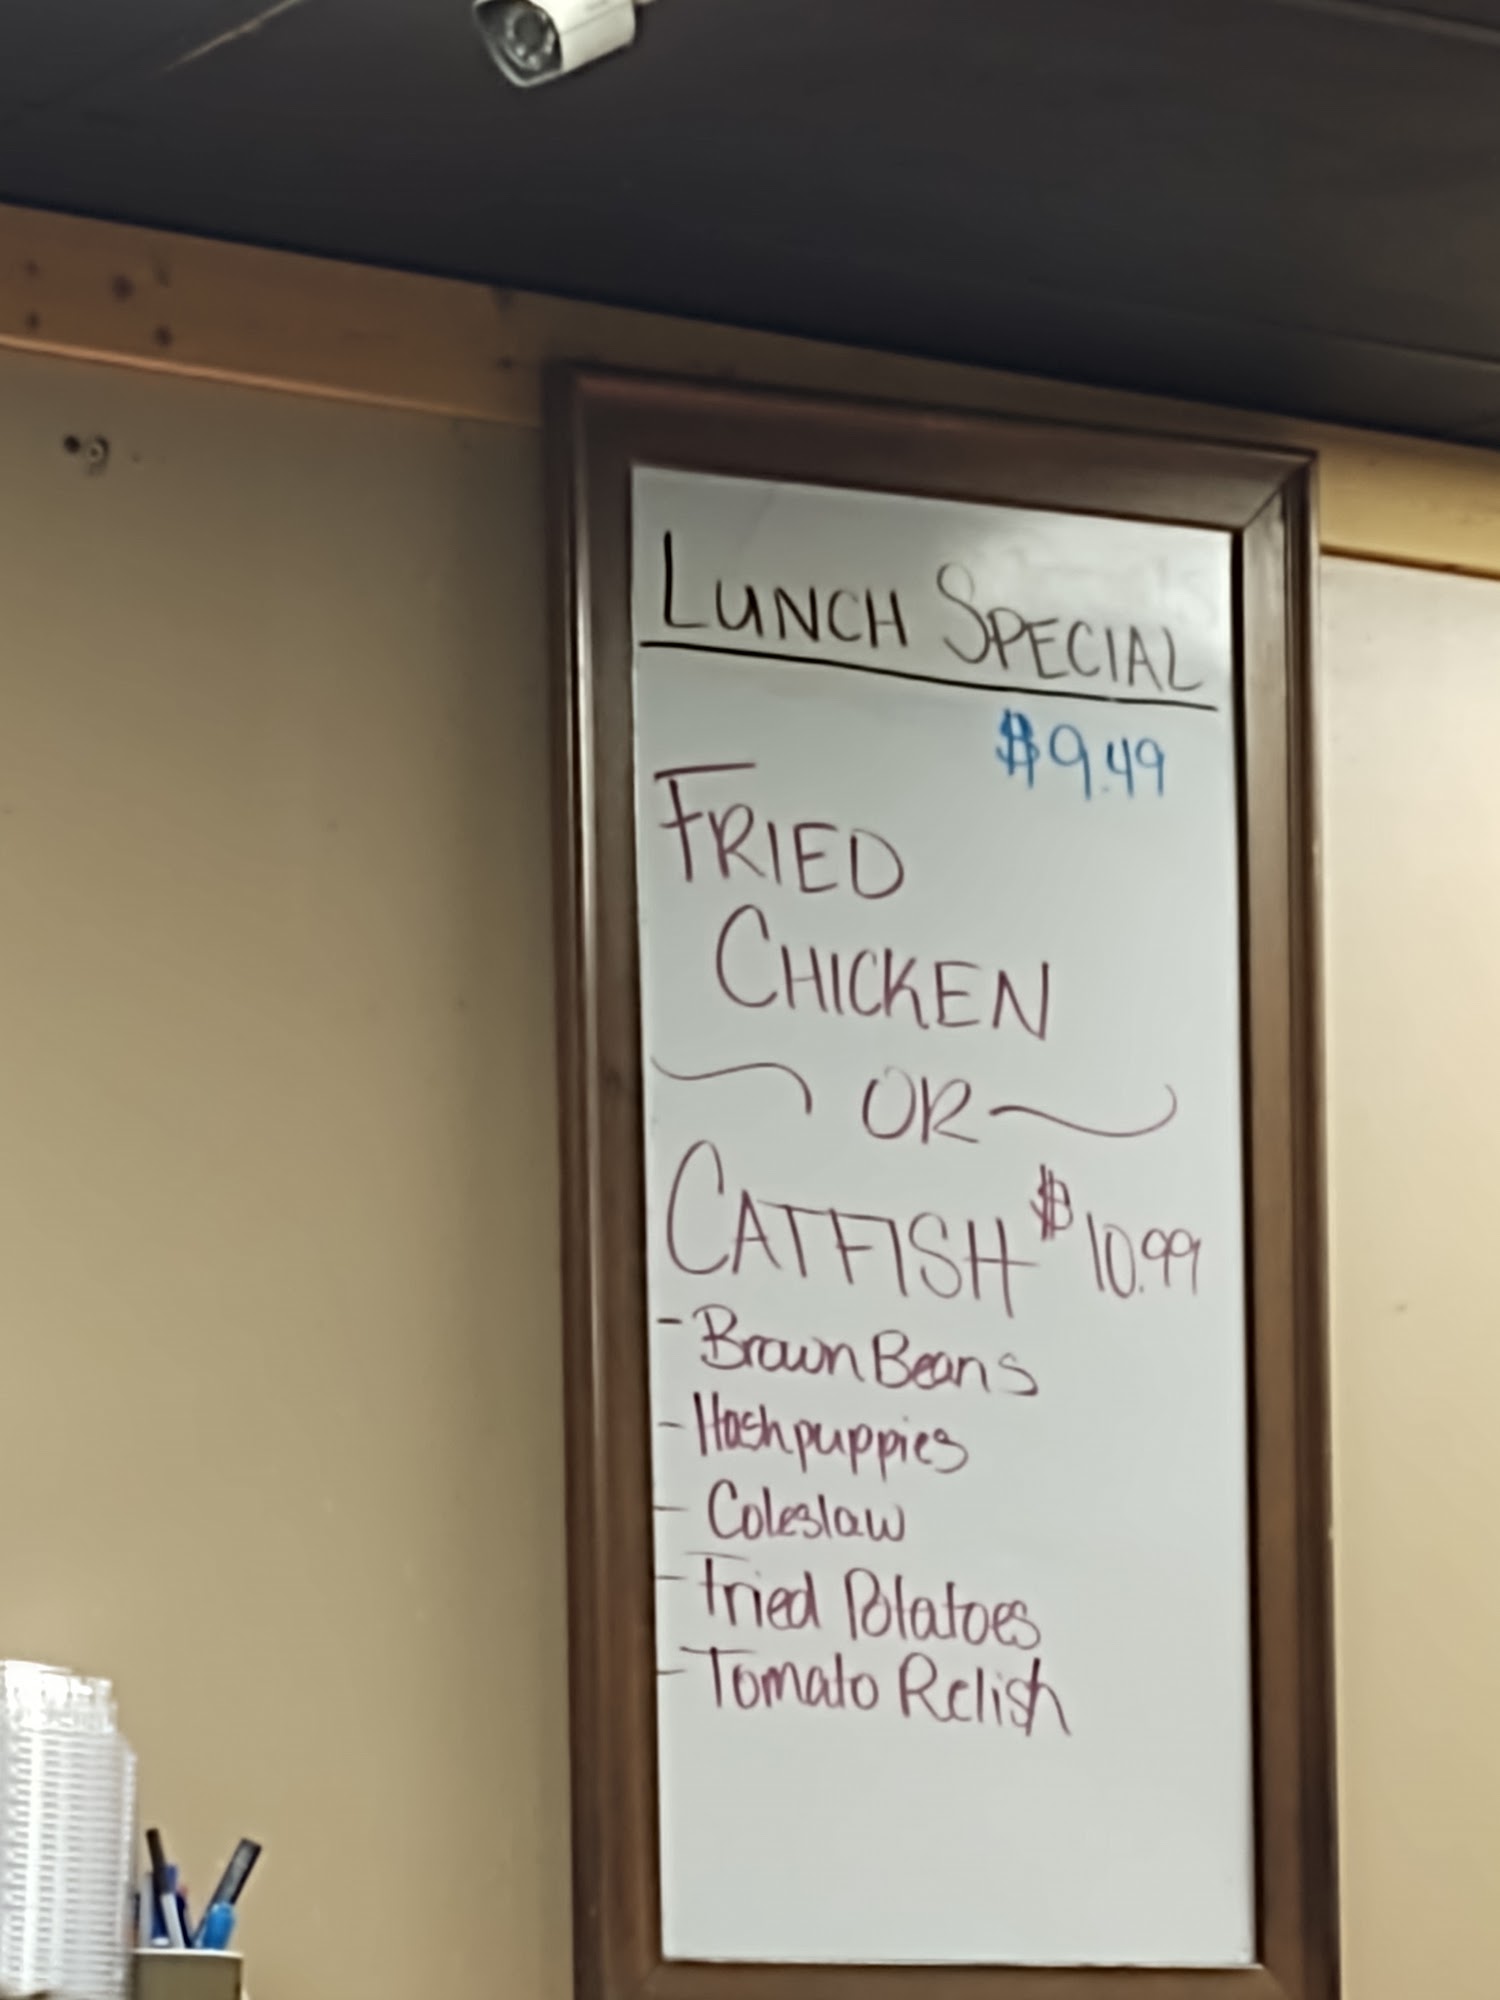 LUNCH SPECIAL
$9.49
FRIED
CHICKEN
OR
CATFISH $10.99
- Brown Beans
- Hashpuppies
- Coleslaw
- Fried Potatoes
- Tomato Relish